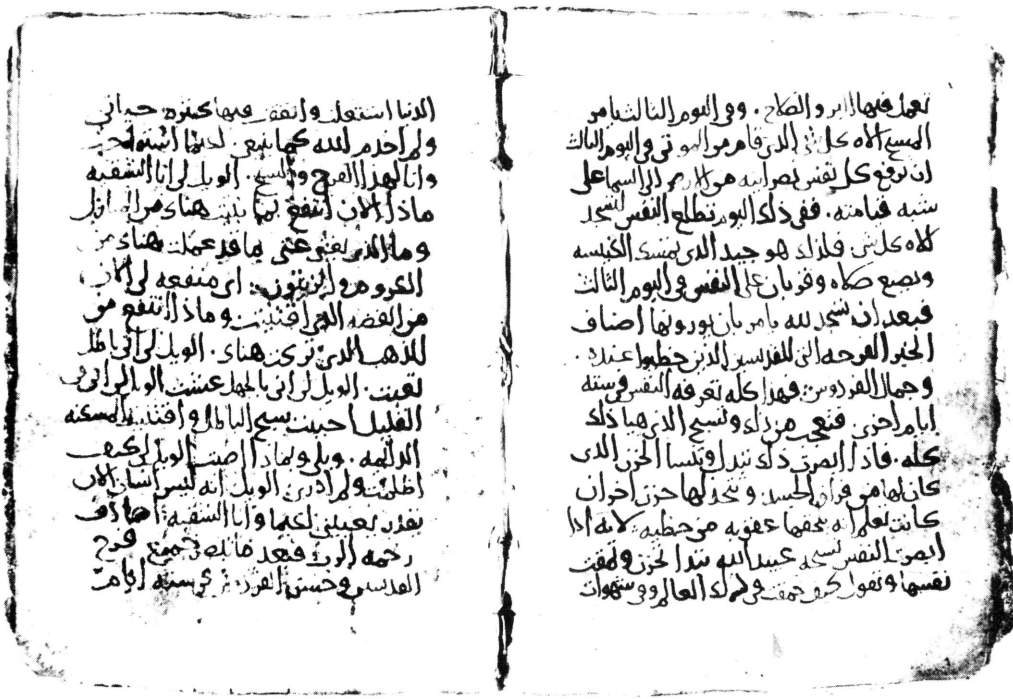 تعمل فيها البر والصلاح. وفي اليوم الثالث يامر
المسيح الاه كل شي الذي قام من الموتى في اليوم الثالث
ان ترفع كل نفس نصرانيه الى السما على
شبه قيامته. ففي ذلك اليوم تطلع النفس لتسجد
لاه كل شي. فلذلك هو جيد الذي تمسك الكنيسه
وتصنع صلاه وقربان على النفس في اليوم الثالث
فبعد ان تسجد لله يامر بان يورونها اصناف
الخير الفرحه التي للقديسين الذين حظيوا عنده.
وجمال الفردوس. فهذا كله تعرفه النفس في سته
ايام اخرى. فتعجب من ذلك وتسبح الذي هيا ذلك
كله. فاذا ابصرت ذلك تبدل وتنسا الحزن الذي
كان لها من فراق الجسد. ويتجدد لها حزن اخر ان
كانت تعلم انه يلحقها عقوبه من خطيه. لانه اذا
ابصرت النفس عبيد الله تبدا الحزن وتمقت
نفسها وتقول كيف حمقت في ذلك العالم وفي شهوات
الدنيا اشتغلت وانفقت فيها كثره حياتي
ولم اخدم لله كما ينبغي لكيما
وانا لهذا الفرح والتسبيح. الويل لي انا الشقيه
ماذا الان انتفع بما بنيت هناك من المنازل
وما الذي يغني عني ما قد عملت هناك من
الكروم والزيتون. اي منفعه لي الان
من الفضه التي اقتنيت وماذا انتفع من
الذهب الذي تركت هناك. الويل لي اني باطل
تعبت. الويل لي اني بالجهل عشت الويل لي اني
القليل احببت سبح الباطل واقتنيت المسكنه
الدايمه. ويلي وماذا اصبت الويل لي كيف
اظلمت ولم ادري الويل انه ليس انسان الان
يقدر يعينني لكيما وانا الشقيه اصادف
رحمه الرب فبعد جميع فرح
القديسين وحسن الفردوس في سته ايام